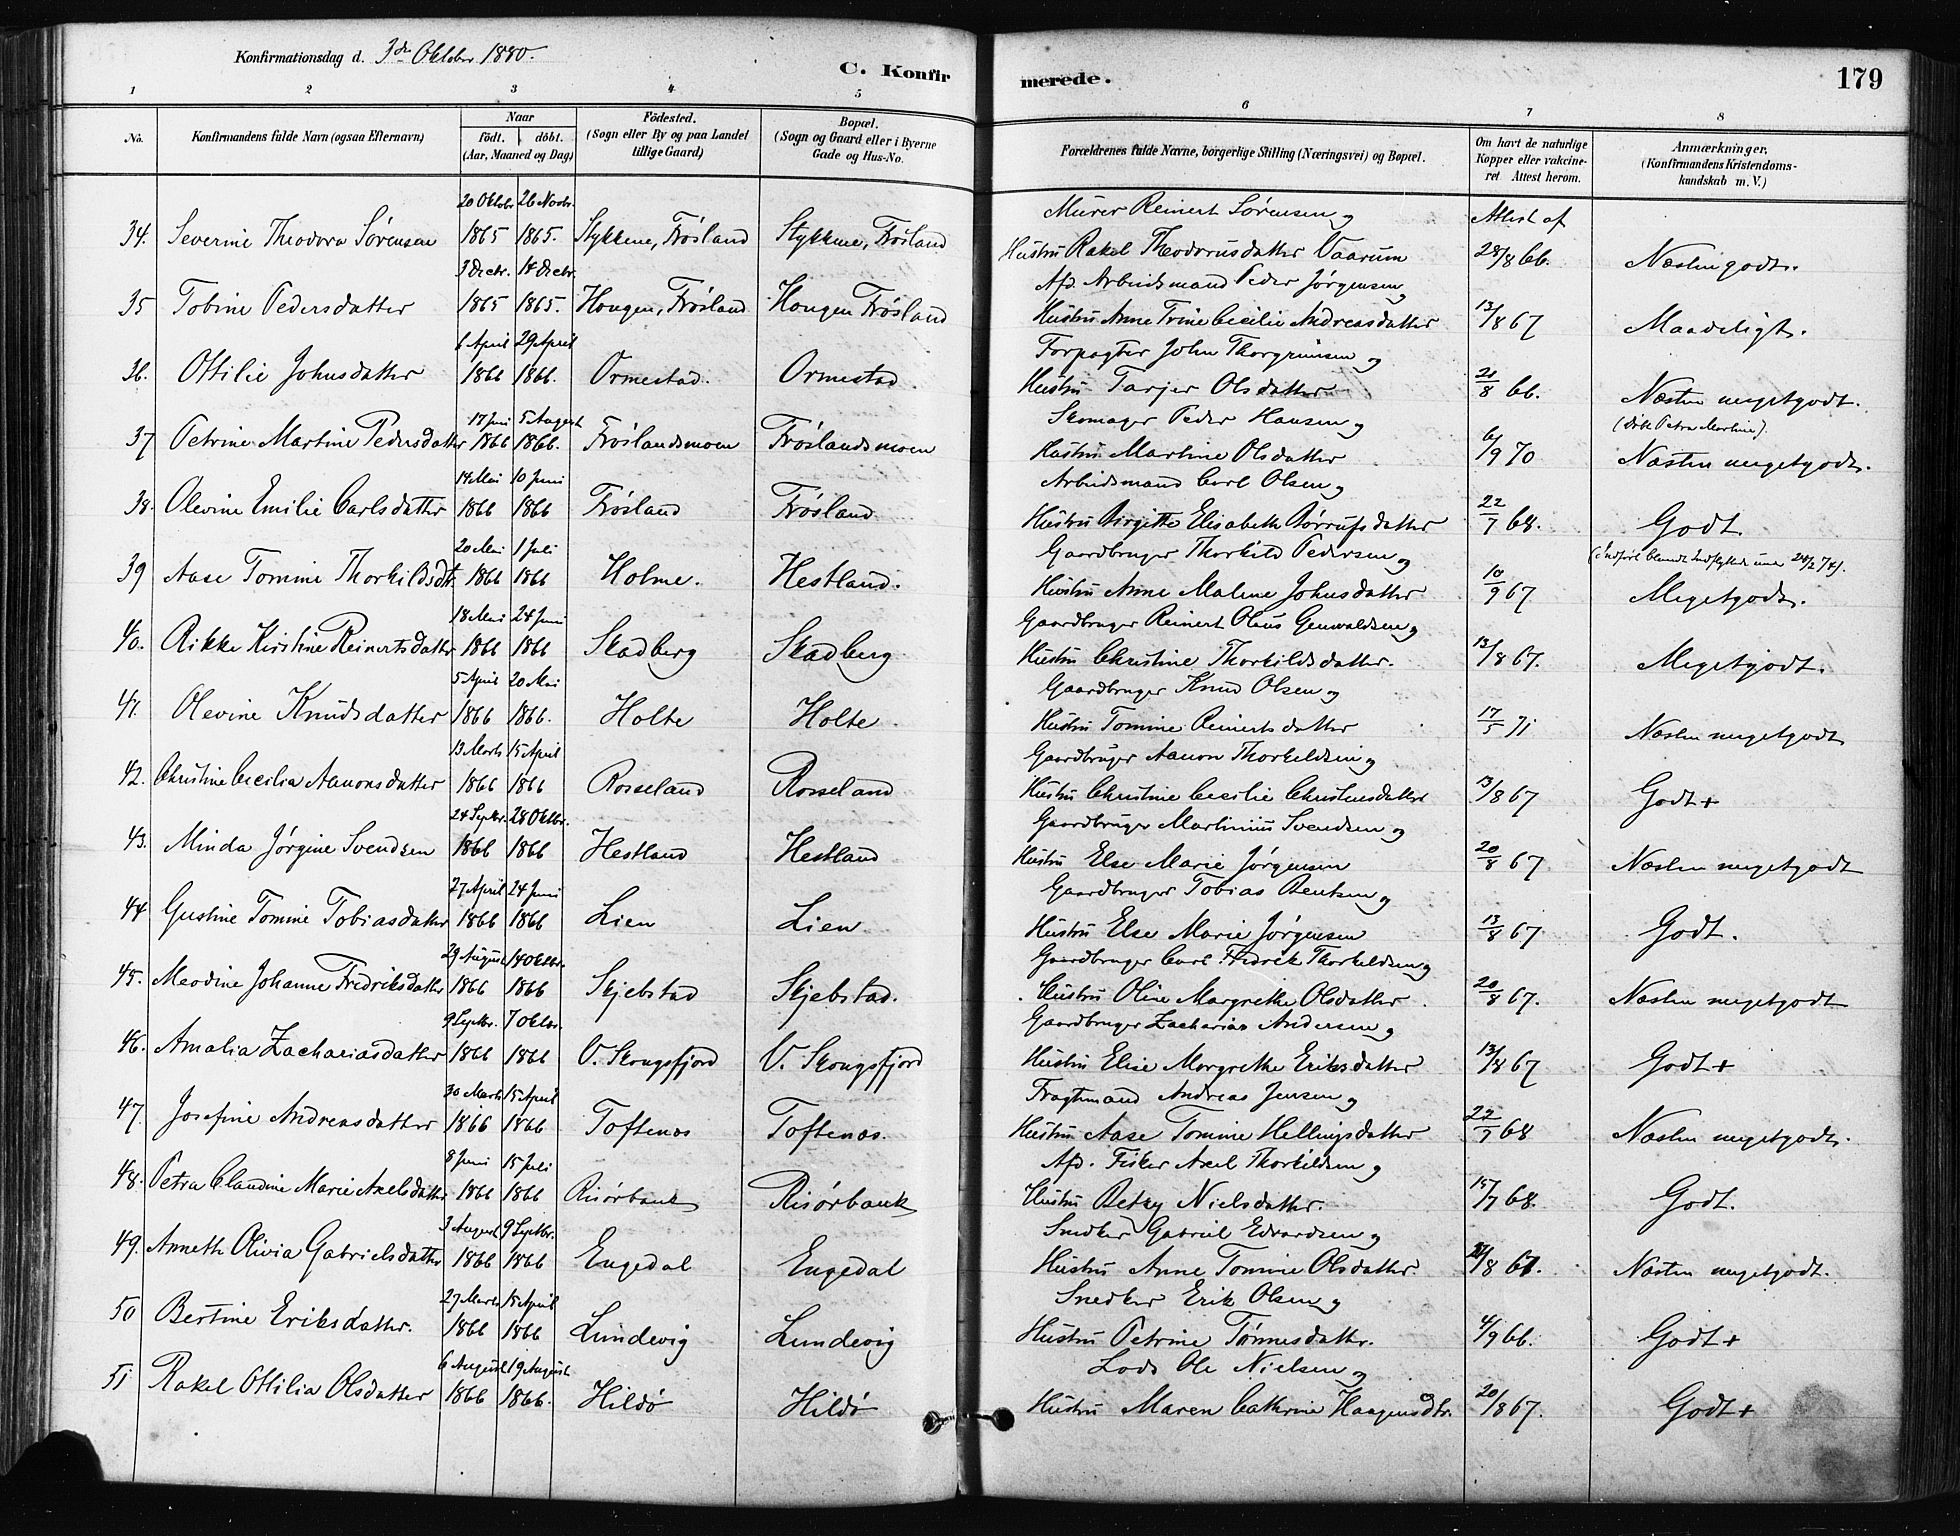 Konfirmationsdag d. 3die Oktober 1880.
C. Konfirmerede.
179
1 2 3 4 5 6 7 8
No. Konfirmandens fulde Navn (ogsaa Efternavn) Naar födt. döbt. (Aar, Maaned og Dag) Födested. (Sogn eller By og paa Landet tillige Gaard) Bopæl. (Sogn og Gaard eller i Byerne Gade og Hus-No. Forældrenes fulde Navne, borgerlige Stilling (Næringsvei) og Bopæl. Om havt de naturlige Kopper eller vakcineret Attest herom. Anmærkninger. (Konfirmandens Kristendomskundskab m. V.)
20 Oktobr 26 Novbr. Murer Reinert Sørensen og Attest af
34. Severine Theodora Sørensen 1865 1865. Stykkene, Frösland Stykkene, Frösland Hustru Rakel Theodorusdatter Vaarum 28/8 66. Næsten godt.
3 Decbr. 14 Decbr. Afd. Arbeidsmand Peder Jørgensen og
35 Tobine Pedersdatter 1865 1865. Hougen, Frösland Hougen Frösland Hustru Anne Trine Cecilie Andreasdatter 13/8 67 Maadeligt.
6 April 29 April Forpagter John Thorgrimsen og
36. Ottilie Johnsdatter 1866 1866. Ormestad. Ormestad. Hustru Tarjer Olsdatter 21/8 66. Næsten megetgodt.
17 Juni 5 August Skomager Peder Hansen og (döbt Petra Martine).
37 Petrine Martine Pedersdatter 1866 1866. Fröslandsmoen Fröslandsmoen Hustru Martine Olsdatter 6/9 70 Næsten megetgodt.
14 Mai 10 Juni Arbeidsmand Carl Olsen og
38. Olevine Emilie Carlsdatter 1866 1866 Frösland Frösland Hustru Birgitte Elisabeth Børrufsdatter 22/7 68. Godt.
20 Mai 1 Juli Gaardbruger Thorkild Pedersen og (Indført blandt Indflyttede under 24/2 74).
39 Aase Tomine Thorkildsdt. 1866 1866 Holme. Hestland. Hustru Anne Malene Johnsdatter 10/9 67 Megetgodt.
18 Mai 24 Juni Gaardbruger Reinert Olaus Genvaldsen og
40. Rikke Kirstine Reinertsdatter 1866 1866 Skadberg Skadberg Hustru Christine Thorkildsdatter. 13/8 67. Megetgodt.
5 April 20 Mai Gaardbruger Knud Olsen og
41. Olevine Knudsdatter 1866 1866. Holte Holte. Hustru Tomine Reinertsdatter 17/5 71 Næsten megetgodt
13 Marts 15 April Gaardbruger Aanon Thorkeldsen og
42. Christine Cecilia Aanonsdatter 1866 1866 Rosseland Rosseland Hustru Christine Cecilie Christensdatter 13/8 67 Godt+
24 Septbr. 28 Oktbr. Gaardbruger Martinius Svendsen og
43. Minda Jørgine Svendsen 1866 1866 Hestland Hestland Hustru Else Marie Jørgensen 20/8 67 Næsten megetgodt
27 April 24 Juni Gaardbruger Tobias Bentsen og
44 Gustine Tomine Tobiasdatter 1866 1866 Lien Lien Hustru Else Marie Jørgensen 13/8 67 Godt.
29 August 14 Oktbr. Gaardbruger Carl Fredrik Thorkeldsen og
45. Meodine Johanne Fredriksdatter 1866 1866 Skjebstad Skjebstad. Hustru Oline Margrethe Olsdatter 20/8 67. Næsten megetgodt
9 Septbr. 7 Oktbr. Gaardbruger Zacharias Andersen og
46. Amalia Zachariasdatter 1866 1866 V. Skougsfjord V. Skougsfjord Hustru Elise Margrethe Eriksdatter 13/8 67 Godt+
30 Marts 15 April Fragtmand Andreas Jensen og
47. Josefine Andreasdatter 1866 1866 Toftenæs Toftenæs. Hustru Aase Tomine Hellingsdatter 22/7 68 Næsten megetgodt.
8 Juni 15 Juli Afd. Fisker Axel Thorkildsen og
48. Petra Claudine Marie Axelsdatter 1866 1866 Risörbank Risörbank Hustru Betzy Nielsdatter. 15/7 68. Godt.
3 August 9 Septbr. Snedker Gabriel Edvardsen og
49. Anneth Olivia Gabrielsdatter 1866 1866 Engedal Engedal Hustru Anne Tomine Olsdatter. /8 67. Næsten megetgodt.
27 Marts 15 April Snedker Erik Olsen og
50 Bertine Eriksdatter. 1866 1866 Lundevig Lundevig Hustru Petrine Tönnesdatter. 4/9 66. Godt+
6 August 19 August Lods Ole Nielsen og
51 Rakel Ottilia Olsdatter 1866 1866. Hildö Hildö Hustru Maren Cathrine Haagensdtr. 20/8 67. Godt+